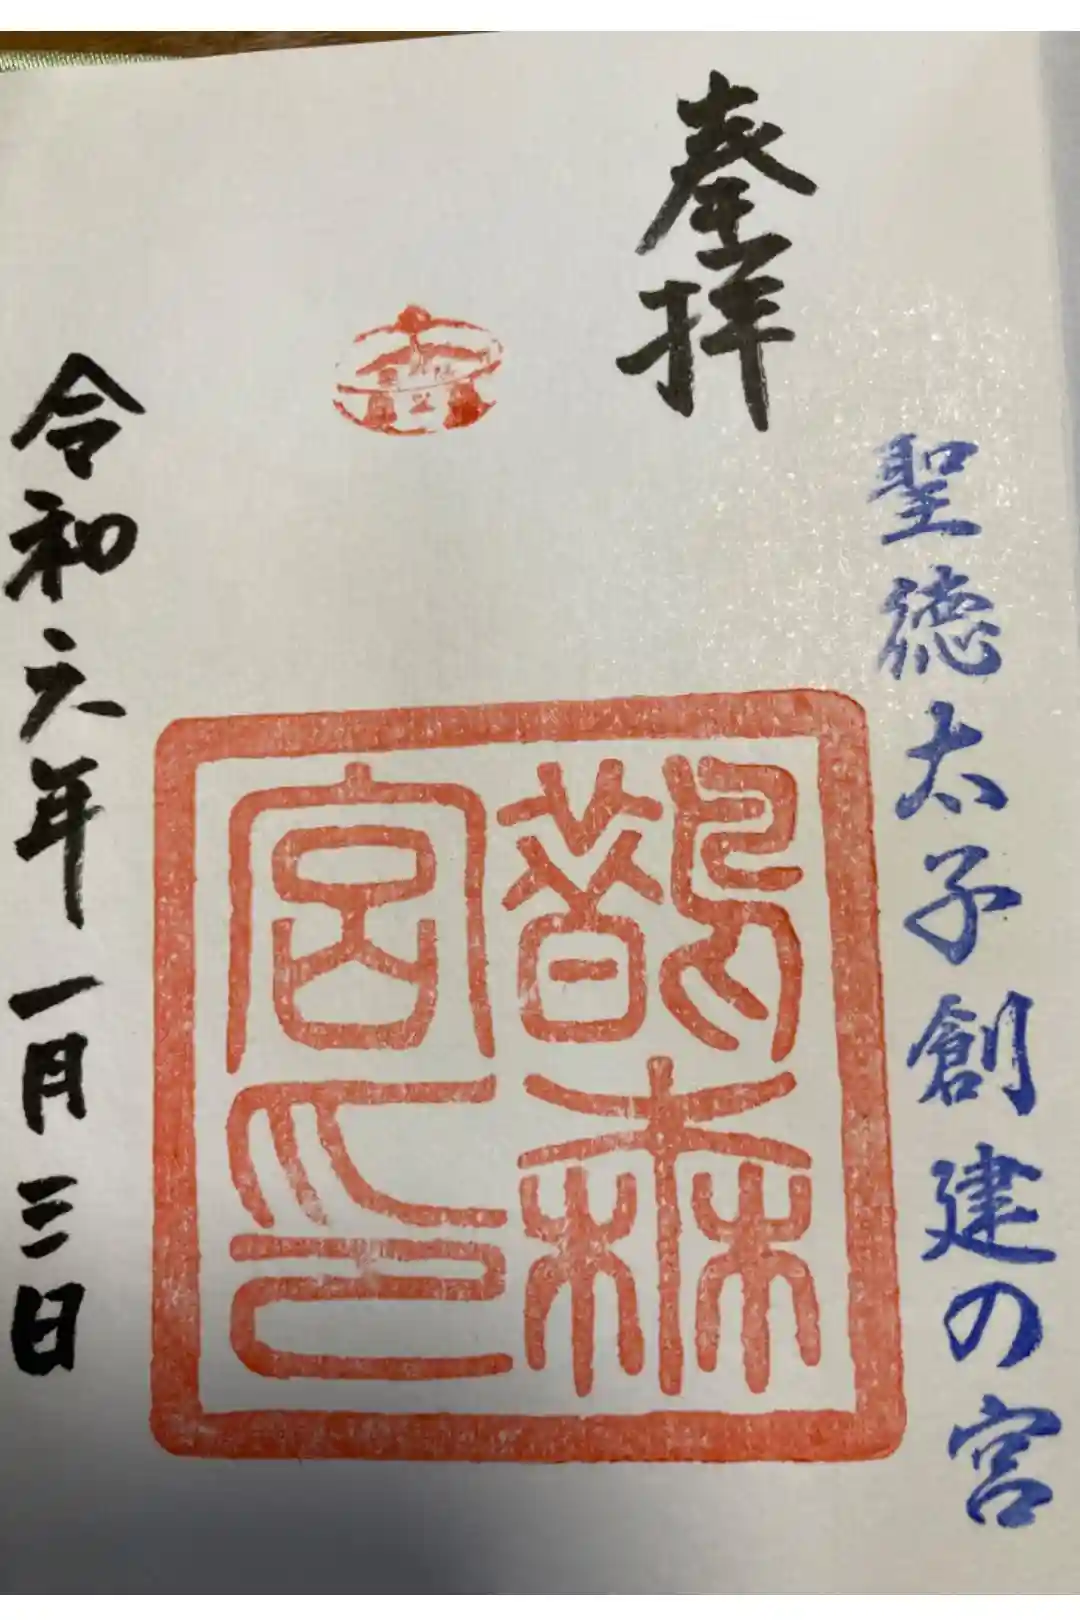 奉拝
聖徳太子創建の宮
鵲森
宮印
令和六年一月三日